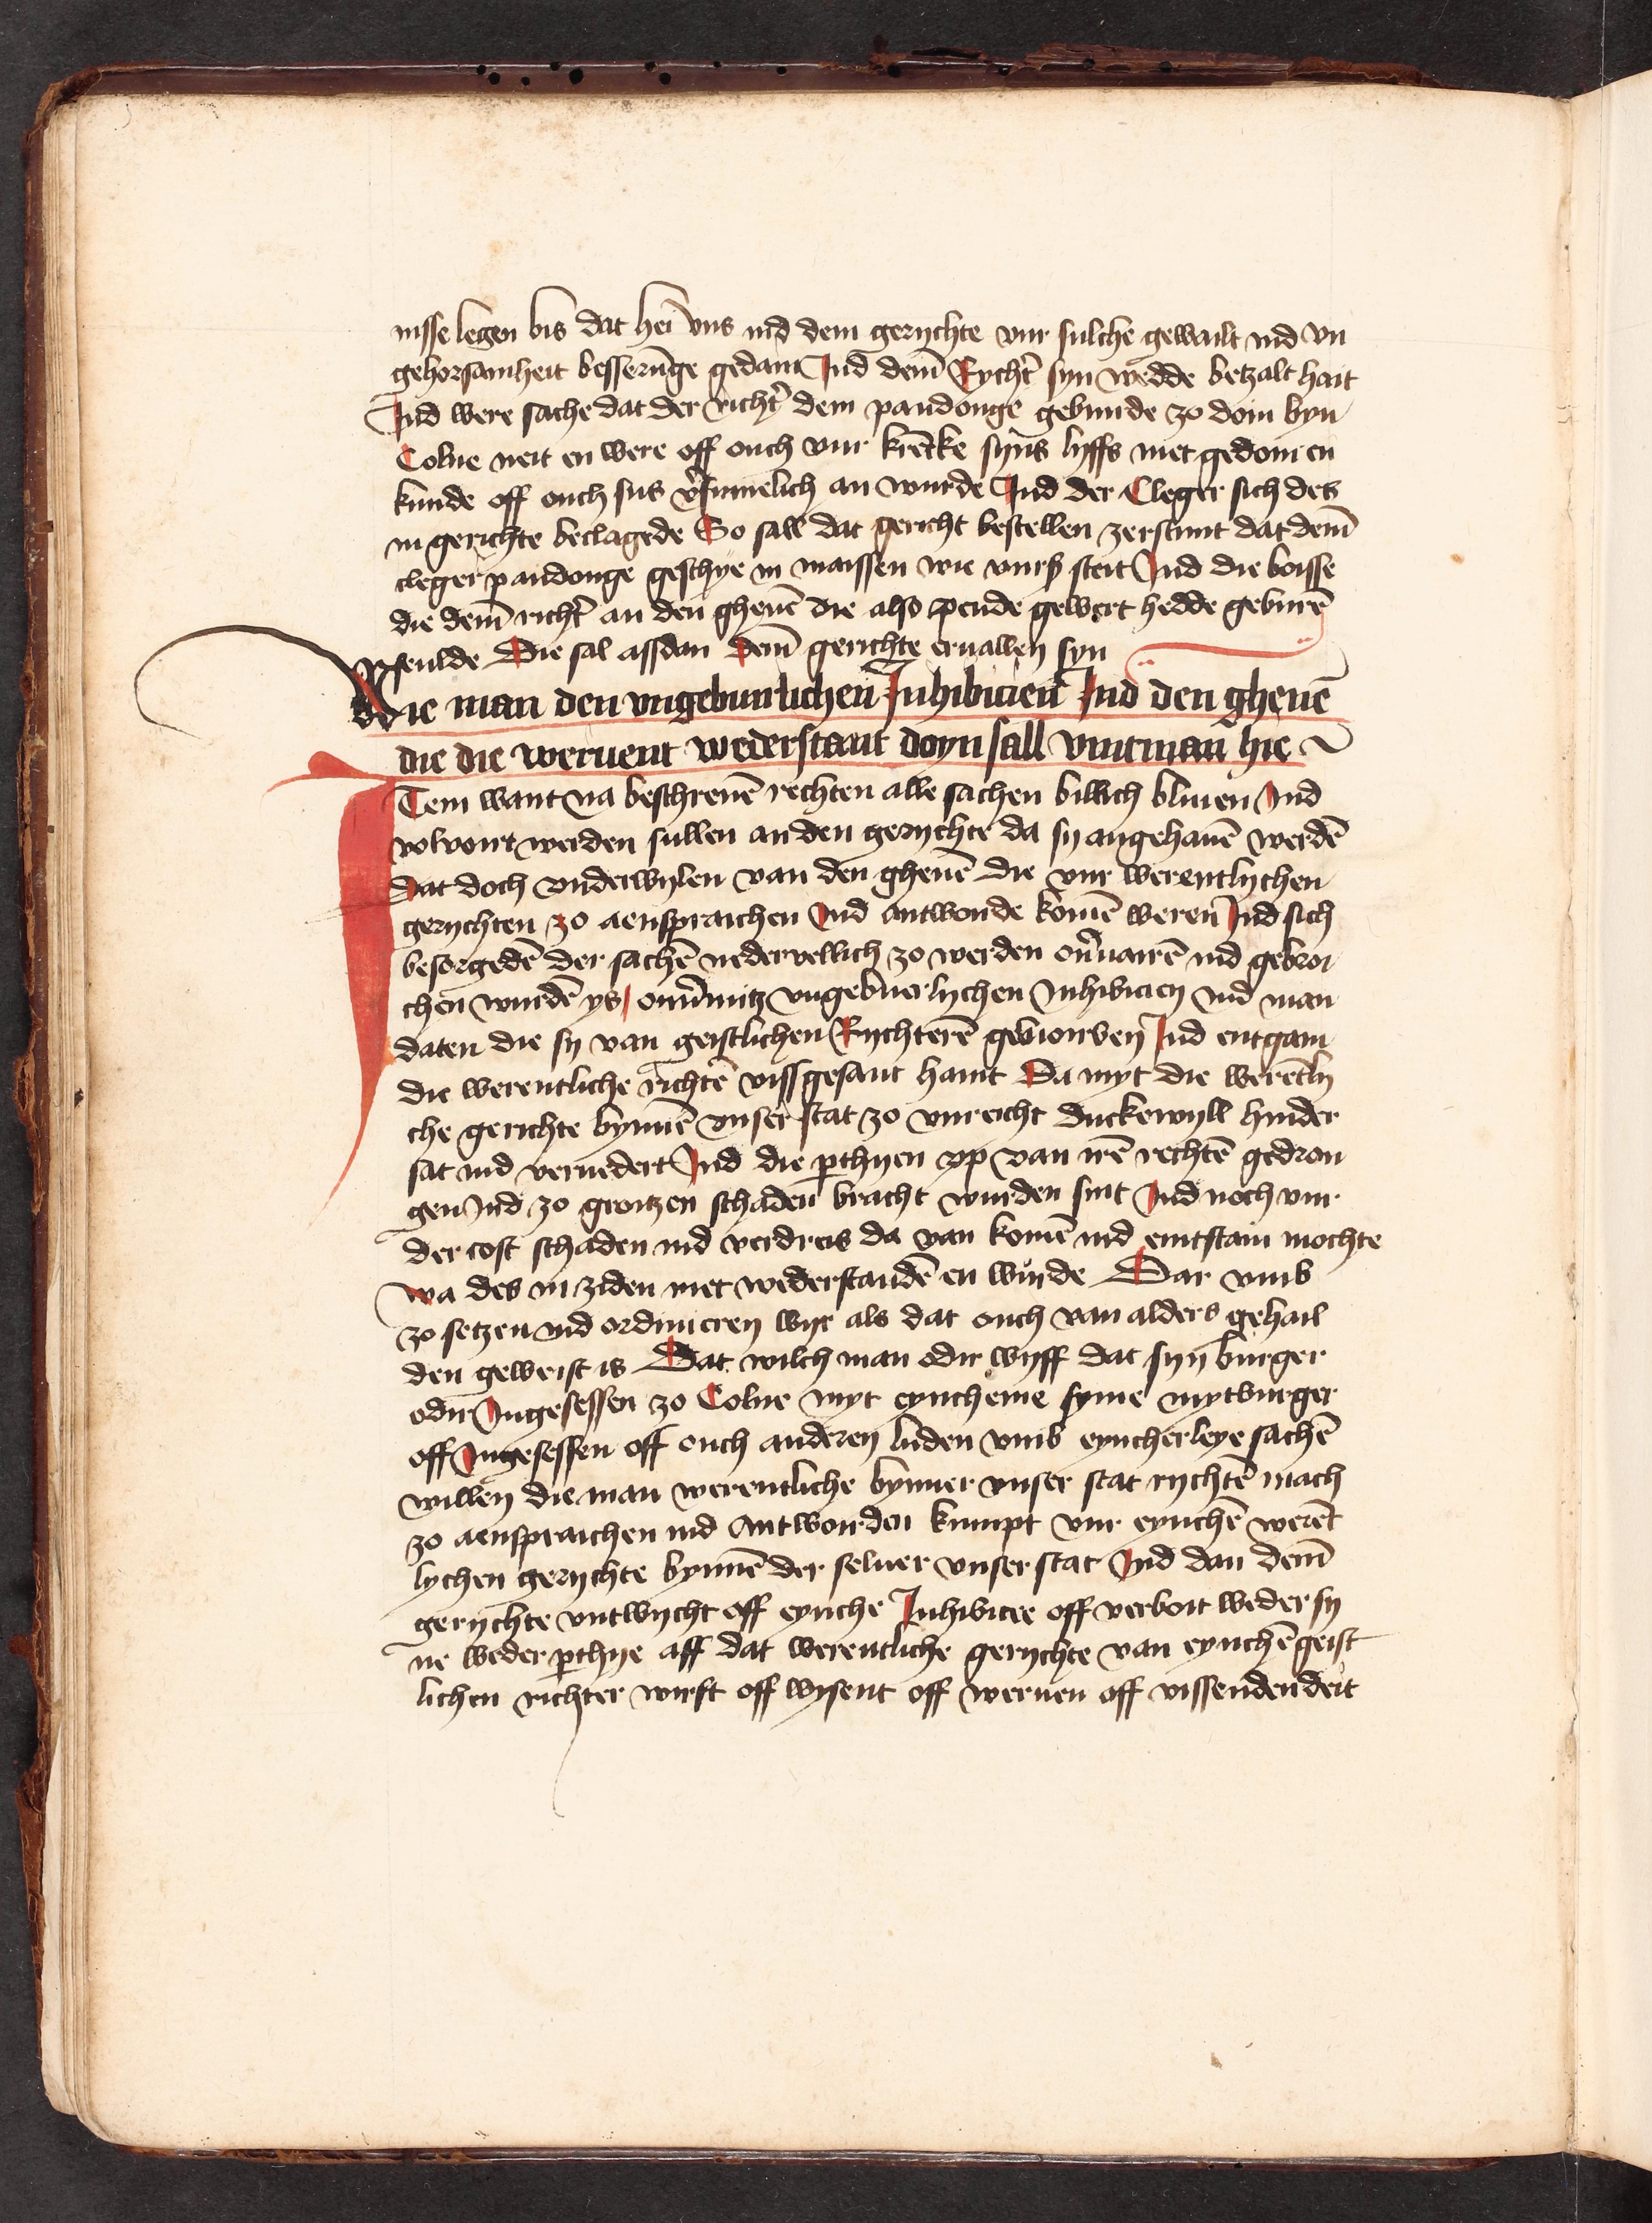 nisse legen bis dat hei vns ind dem gerychte vur sulche gewailt ind vn
gehorsamheit besserūge gedain Ind dem̄ Rycht̓ syn wedde betzalt hait
Ind were sache dat der richt̓ dem pandonge gebunde zo doin byn
Colne neit en were off ouch vur krēcke syns lyffs niet gedoin en
kunde off ouch sus v̓sumelich an wurde Ind der Cleger sich des
in gerichte beclagede So sall dat gericht bestellen zerstunt dat dem̄
cleger pandonge geschye in maissen wie vurß steit Ind die boisse
die dem̄ richt̓ an den ghenē die also pende gewert hedde geburē
seulde Die sal assdan dem̄ gerichte eruallen syn
Wie man den vngeburlichen Inhibicien Ind den ghenē
die die weruent wederstant doyn sall vint man hie
Item want na beschreuē rechten alle sachen billich bliuen Ind
volvoirt werden sullen an den gerychte da sy angehauē werdē
dat doch vnderwylen van den ghenē die vur werentlychen
gerychten zo aenspraichen Ind antworde komē weren Ind sich
besorgedē der sachē nedervellich zo werden ov̓uairē ind gebroi
chen wurdē ys / ouermitz vngebuerlychen Inhibicien ind man
daten die sy van geistlichen Rychterē geworven Ind entgain
die werentliche richtē vissgesant haint Da myt die werētly
che gerichte bynnē vnser stat zo vnreicht duckewyll hinder
sat ind vernedert Ind die p̄thyen vp van irē rechtē gedron
gen Ind zo groitzen schaden bracht wurden sint Ind noch vur
der cost schaden ind verdreis da van komē ind entstain mochte
wa des in ziden niet wederstandē en wurde Dar vmb
zo setzen ind ordinieren wyr als dat ouch van alders gehail
den geweist is Dat wilch man odir wyff dat syn burger
odir Ingesessen zo Colne myt eyncheme syme mytburger
off Ingesessen off ouch anderen luden vmb eyncherleye sachē
willen die man werentliche bynner vnser stat rychtē mach
zo aenspraichen ind Antworden kumpt vur eynchē werēt
lychen gerychte bynnē der seluer vnser stat Ind dan dem̄
gerychte vntwycht off eynche Inhibicie off verboit weder sy
ne weder p̄thye aff dat werentliche gerychte van eynchē geist
lichen richter wirft off wysent off weruen off vissenden deit